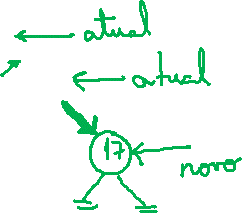 atual
atual
17
novo